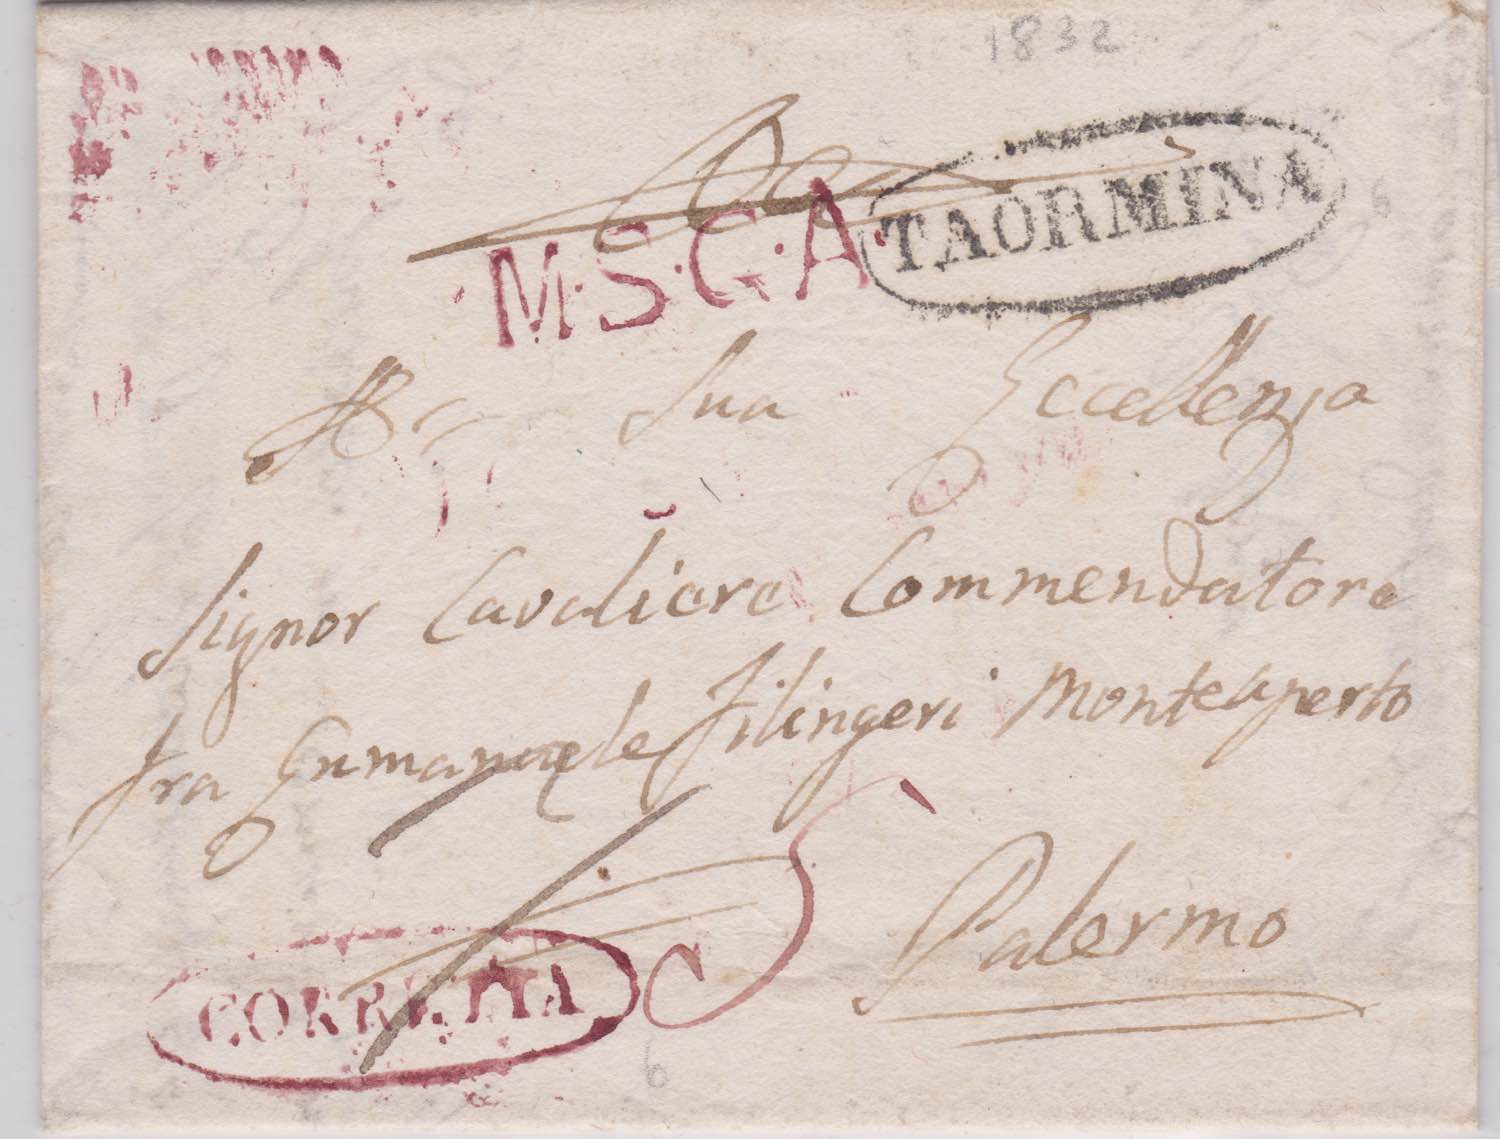 1832
TAORMINA
M·S·G·A·
A Sua Eccellenza
Signor Cavaliere Commendatore
fra Enmanuele Filingeri Monteaperto
Palermo
CORRETTA
5
6
6